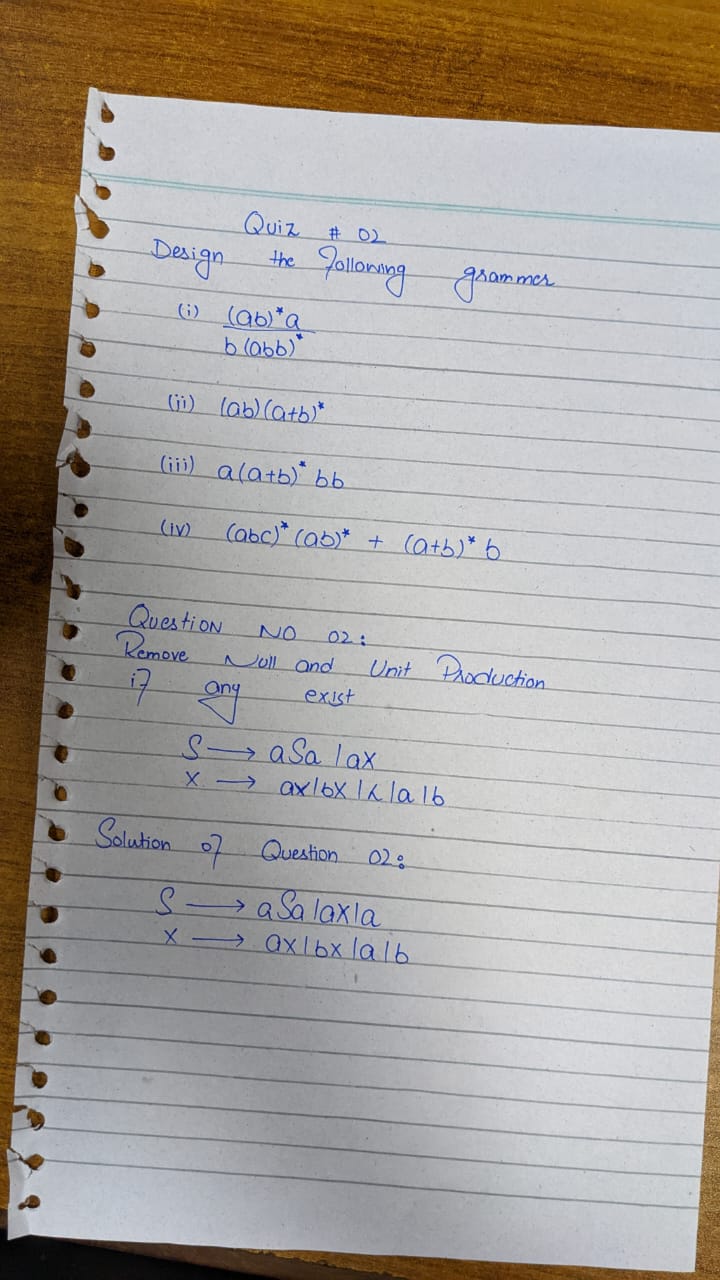 Quiz # 02
Design the following grammer
(i) (ab)*a
b(abb)*
(ii) (ab)(a+b)*
(iii) a(a+b)* bb
(iv) (abc)* (ab)* + (a+b)* b
Question NO 02:
Remove Null and Unit Production
if any exist
S → aSa | ax
X → ax | bX | λ | a | b
Solution of Question 02:
S → aSa | ax | a
X → ax | bx | a | b